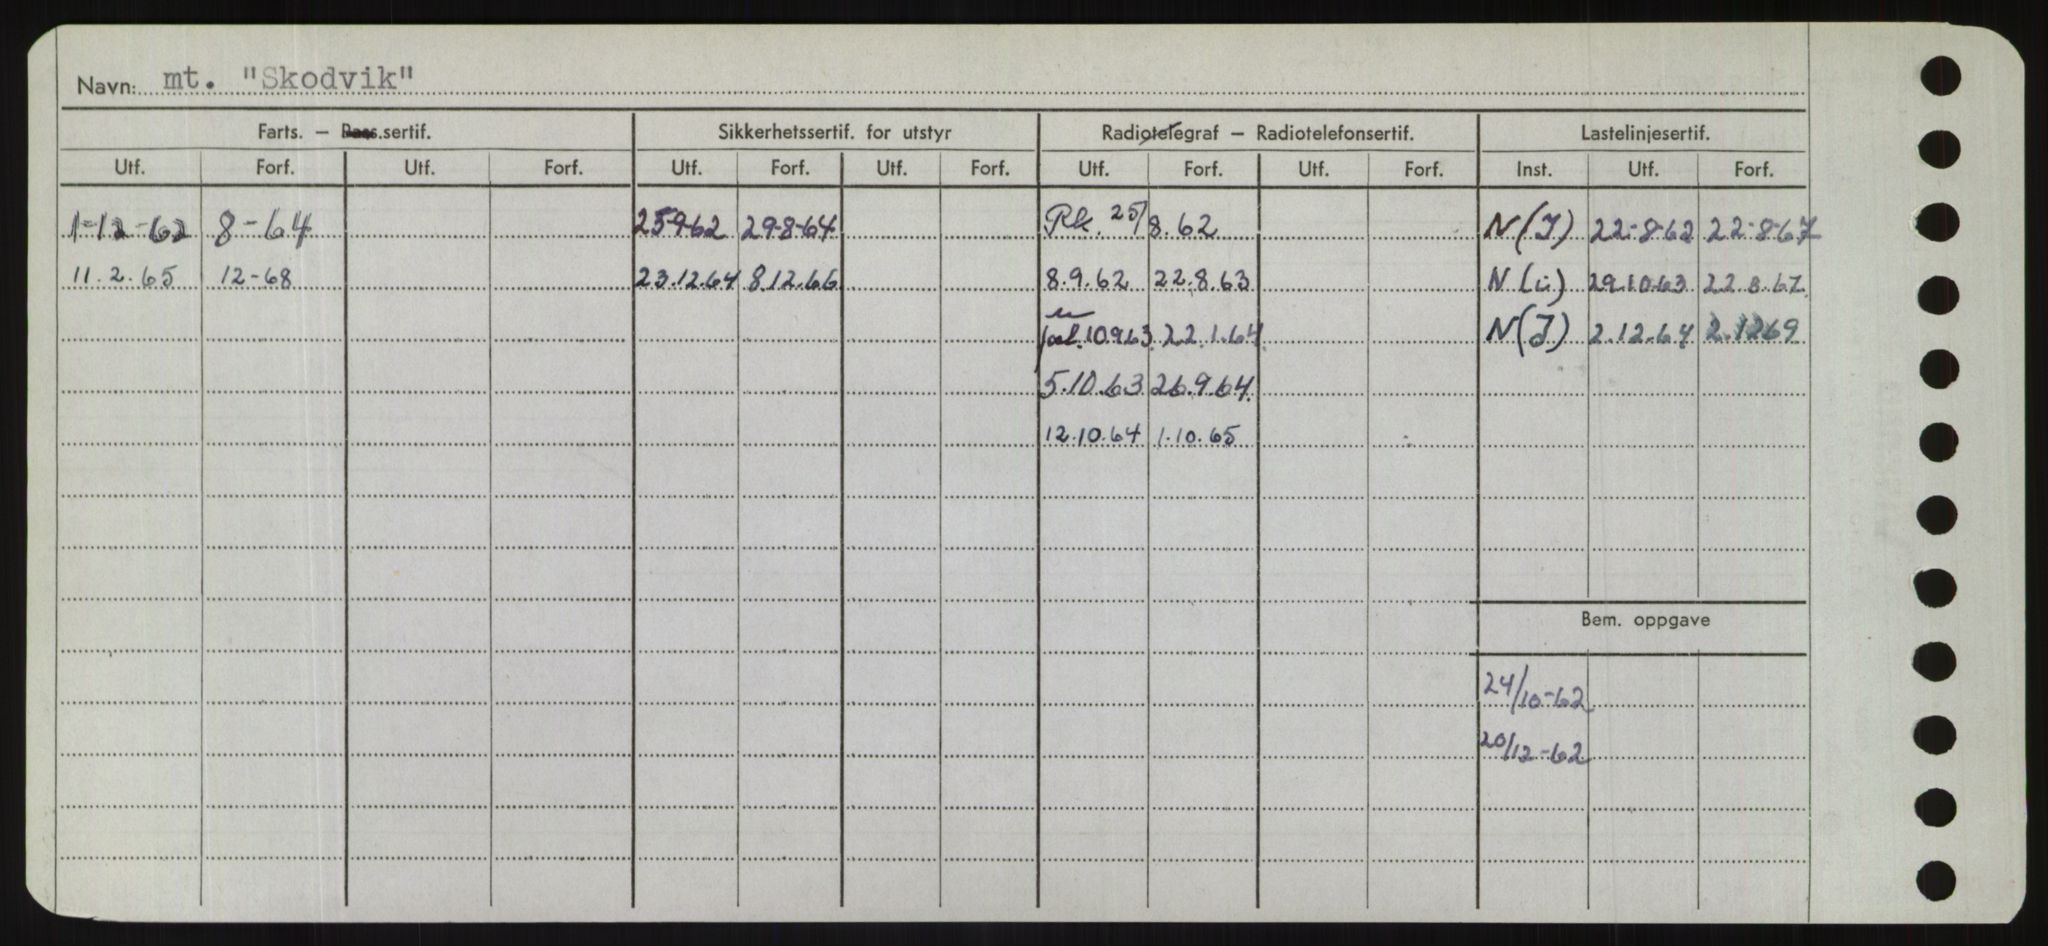 Navn: mt. "Skodvik"
Farts. – Pass.sertif. Sikkerhetssertif. for utstyr Radiotelegraf – Radiotelefonsertif. Lastelinjesertif.
Utf. Forf. Utf. Forf. Utf. Forf. Utf. Forf. Utf. Forf. Utf. Forf. Inst. Utf. Forf.
1-12-62 8-64 25-9-62 29-8-64 Rk. 25/8.62 N(J) 22-8-62 22-8-67
11.2.65 12-68 23.12.64 8.12.66 8.9.62 22.8.63 N(i) 29.10.63 22.8.67
10.9.63 22.1.64 N(J) 2.12.64 2.12.69
5.10.63 26.9.64
12.10.64 1.10.65
Bem. oppgave
24/10-62
20/12-62